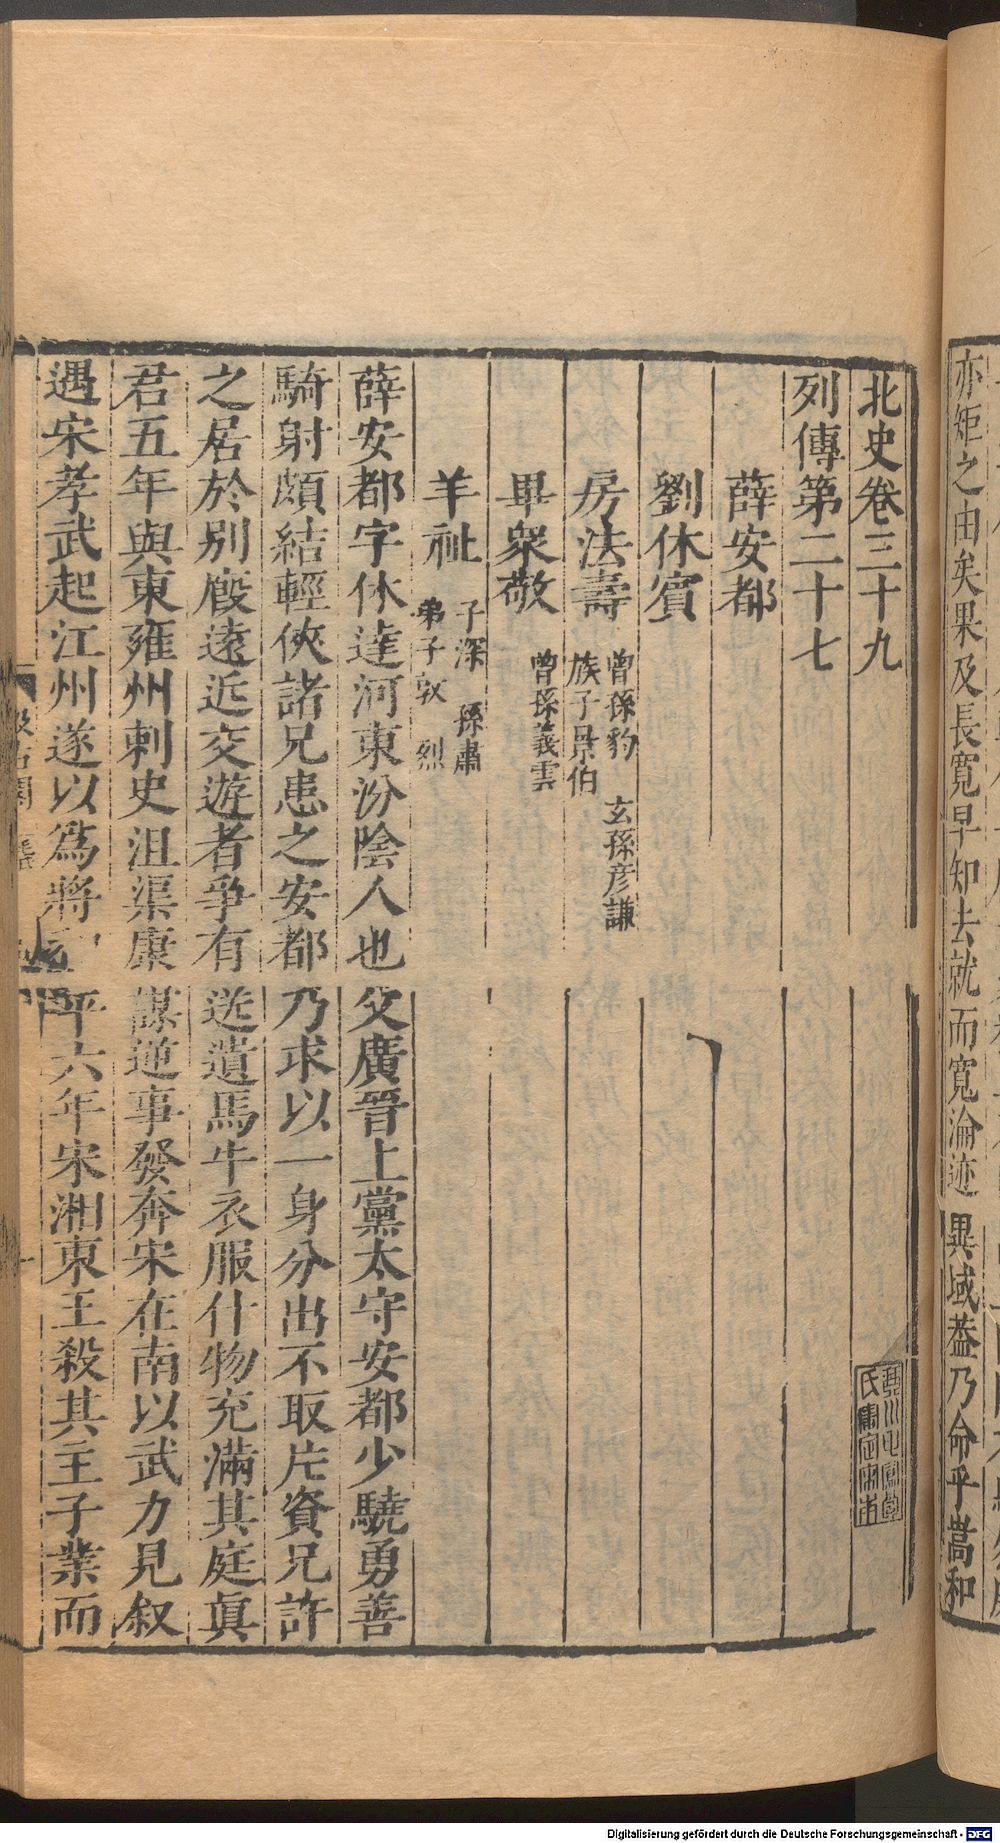 亦矩之由矣果及長寬早知去就而寬淪迹異域葢乃命乎嵩和
北史卷三十九
琴川毛鳳苞
氏審定宋本
列傳第二十七
薛安都
劉休賓
房法壽 曾孫豹 玄孫彦謙
族子景伯
畢衆敬 曾孫義雲
羊祉 子深 孫肅
弟子敦 烈
薛安都字休達河東汾陰人也父廣晉上黨太守安都少驍勇善
騎射頗結輕俠諸兄患之安都乃求以一身分出不取片資兄許
之居於別廏遠近交遊者爭有送遺馬牛衣服什物充滿其庭眞
君五年與東雍州刺史沮渠康謀逆事發奔宋在南以武力見叙
遇宋孝武起江州遂以爲將和平六年宋湘東王殺其主子業而
Digitalisierung gefördert durch die Deutsche Forschungsgemeinschaft - DFG